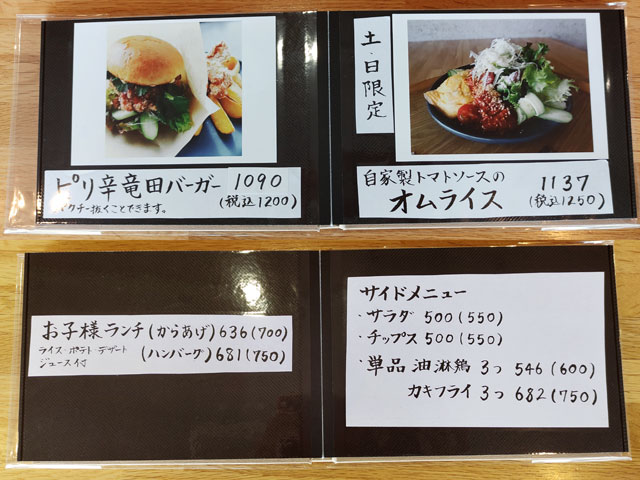 ピリ辛竜田バーガー 1090
パクチー抜くことできます。 (税込1200)
土・日限定
自家製トマトソースの 1137
オムライス (税込1250)
お子様ランチ (からあげ) 636(700)
ライス・ポテト・デザート (ハンバーグ) 681(750)
ジュース付
サイドメニュー
・サラダ 500 (550)
・チップス 500 (550)
・単品 油淋鶏 3つ 546 (600)
カキフライ 3つ 682 (750)